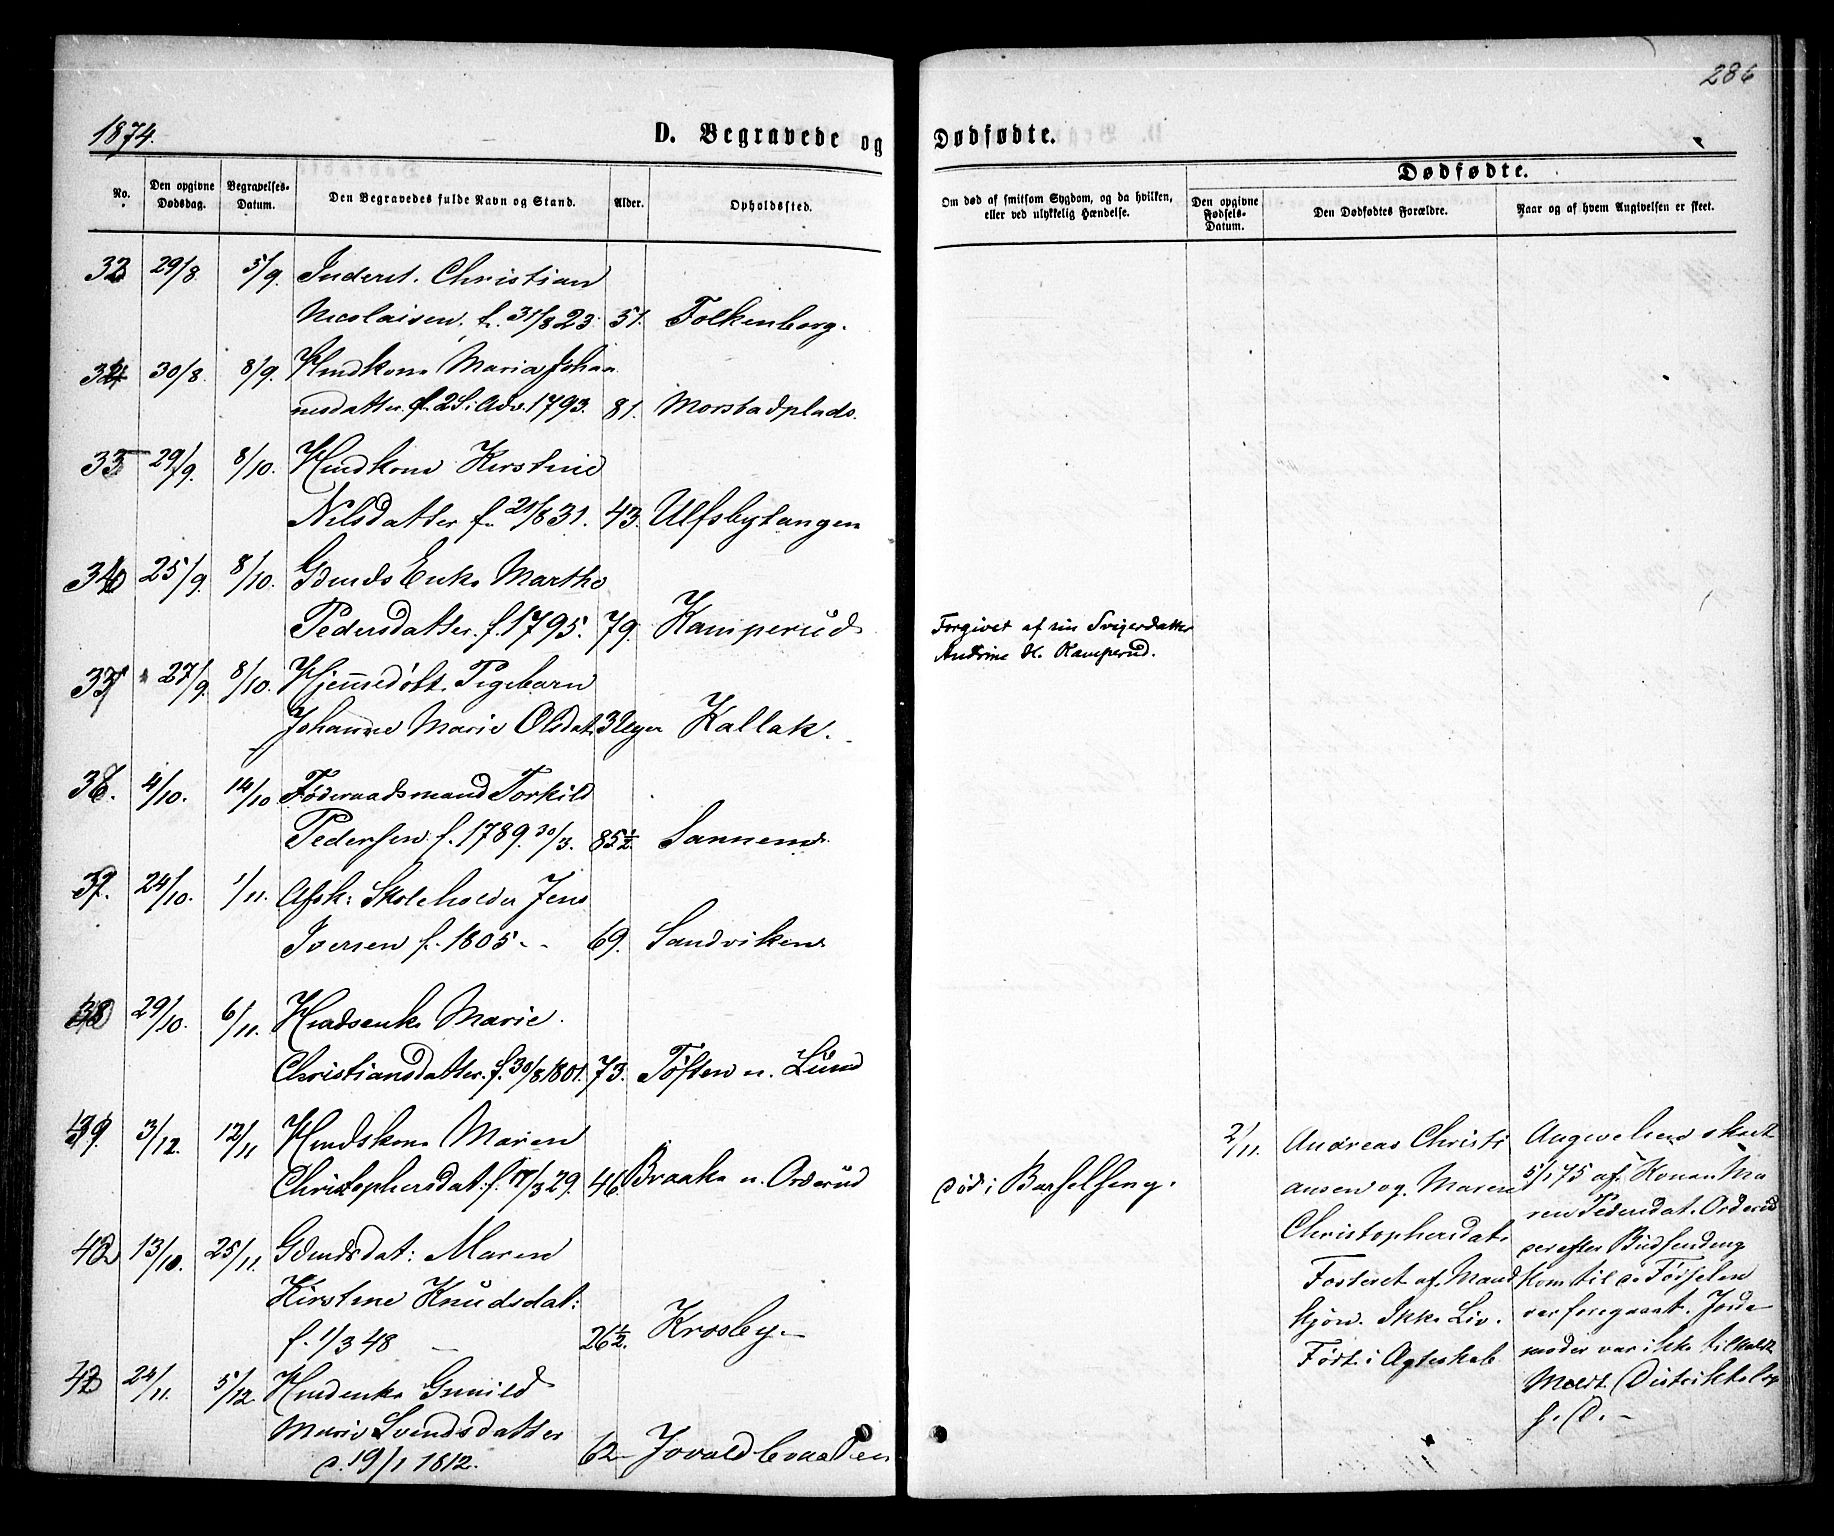 286
1874.
D. Begravede og Dødfødte.
No.
Den opgivne Dødsdag.
Begravelses-Datum.
Den Begravedes fulde Navn og Stand.
Alder.
Opholdssted.
Om død af smitsom Sygdom, og da hvilken, eller ved ulykkelig Hændelse.
Dødfødte.
Den opgivne Fødsels-Datum.
Den Dødfødtes Forældre.
Naar og af hvem Angivelsen er skeet.
33 29/8 5/9. Inderst. Christian
Nicolaisen. f. 31/8 23. 51. Folkenborg.
34 30/8. 8/9. Hmdkone Maria Johan
nesdatter. f. 2 S. i Adv. 1793. 81. Morstadplads.
35 29/9. 8/10. Hmdkone Kirstine
Nilsdatter f. 21/8 31. 43. Ulfsbytangen
36 25/9. 8/10. Gdmds Enke Marthe
Pedersdatter. f. 1795. 79. Kamperud
Forgivet af sin Svigerdatter
Andrine H. Kamperud.
37 27/9. 8/10. Hjemmedøbt. Pigebarn
Johanne Marie Olsdat. 3 Uger Kallak.
38. 4/10. 14/10 Føderaadsmand Torkild
Pedersen. f. 1789. 30/3. 85½. Sannem
39. 24/10. 1/11. Afsk: Skoleholder Jens
Iversen f. 1805. 69. Sandviken
38 29/10. 6/11. Hmdsenke Marie.
Christiansdatter. f. 30/8 1801. 73. Toften u. Lund
39. 3/12. 12/11 Hmdskone Maren
Christophersdat. f. 17/3 29. 46. Braaka u. Orderud
død i Barselseng.
2/11. Andreas Christi
ansen og. Maren
Christophersdat.
Fosteret af Mand
kjøn. Ikke Liv.
Født i Ægteskab
Angivelsen skeet
5/1 75 af Konen Ma
ren Pedersdat. Orderud
der efter Budsending
kom til da Fødselen
var foregaaet. Jorde
moder var ikke tilkaldt
Meldt Distriktslæg
s. D.
40 13/10. 25/11. Gdmdsdat: Maren
Kirstine Knudsdat:
f. 1/3 48 26½. Krosby.
42 24/11. 5/12. Hmdenke Gunild
Marie Svendsdatter
d. 19/1 1812. 62 Jovaldbraaten